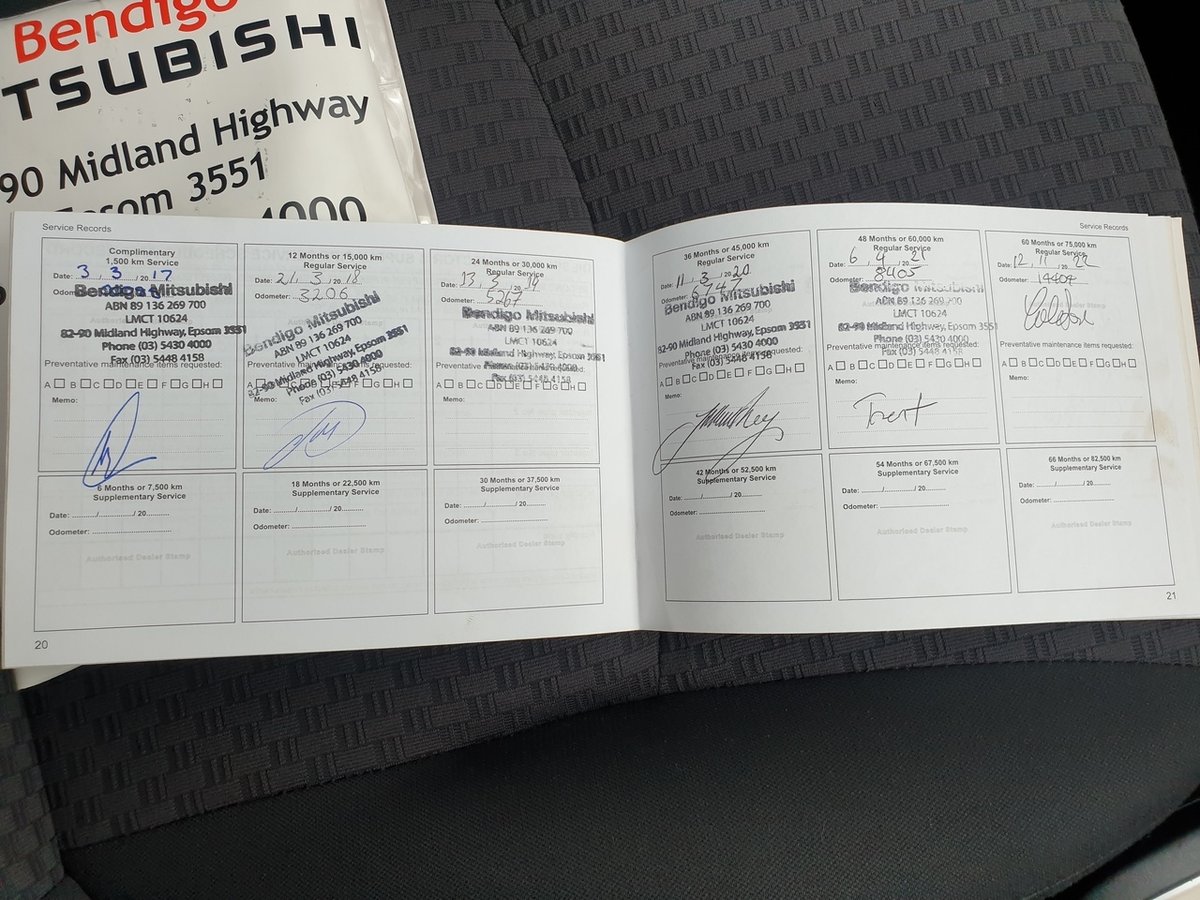 Bendigo
TSUBISHI
90 Midland Highway
Epsom 3551
4000
Service Records
Complimentary
1,500 km Service
Date: 3 / 3 / 20 17
Odometer:
Bendigo Mitsubishi
ABN 89 136 269 700
LMCT 10624
82-90 Midland Highway, Epsom 3551
Phone (03) 5430 4000
Fax (03) 5448 4158
Preventative maintenance items requested:
A B C D E F G H
Memo:
12 Months or 15,000 km
Regular Service
Date: 21 / 3 / 20 18
Odometer: 3206
Bendigo Mitsubishi
ABN 89 136 269 700
LMCT 10624
82-90 Midland Highway, Epsom 3551
Phone (03) 5430 4000
Fax (03) 5448 4158
Preventative maintenance items requested:
A B C D E F G H
Memo:
24 Months or 30,000 km
Regular Service
Date: 13 / 5 / 20 19
Odometer: 5267
Bendigo Mitsubishi
ABN 89 136 269 700
LMCT 10624
82-90 Midland Highway, Epsom 3551
Phone (03) 5430 4000
Fax (03) 5448 4158
Preventative maintenance items requested:
A B C D E F G H
Memo:
6 Months or 7,500 km
Supplementary Service
Date: ........./........./ 20.........
Odometer:
Authorised Dealer Stamp
18 Months or 22,500 km
Supplementary Service
Date: ........./........./ 20.........
Odometer:
Authorised Dealer Stamp
30 Months or 37,500 km
Supplementary Service
Date: ........./........./ 20.........
Odometer:
Authorised Dealer Stamp
20
Service Records
36 Months or 45,000 km
Regular Service
Date: 11 / 3 / 20 20
Odometer: 6747
Bendigo Mitsubishi
ABN 89 136 269 700
LMCT 10624
82-90 Midland Highway, Epsom 3551
Phone (03) 5430 4000
Fax (03) 5448 4158
Preventative maintenance items requested:
A B C D E F G H
Memo:
48 Months or 60,000 km
Regular Service
Date: 6 / 4 / 20 21
Odometer: 8405
Bendigo Mitsubishi
ABN 89 136 269 700
LMCT 10624
82-90 Midland Highway, Epsom 3551
Phone (03) 5430 4000
Fax (03) 5448 4158
Preventative maintenance items requested:
A B C D E F G H
Memo:
Trent
60 Months or 75,000 km
Regular Service
Date: 12 / 11 / 20 22
Odometer: 14404
Authorised Dealer Stamp
Preventative maintenance items requested:
A B C D E F G H
Memo:
42 Months or 52,500 km
Supplementary Service
Date: ........./........./ 20.........
Odometer:
Authorised Dealer Stamp
54 Months or 67,500 km
Supplementary Service
Date: ........./........./ 20.........
Odometer:
Authorised Dealer Stamp
66 Months or 82,500 km
Supplementary Service
Date: ........./........./ 20.........
Odometer:
Authorised Dealer Stamp
21